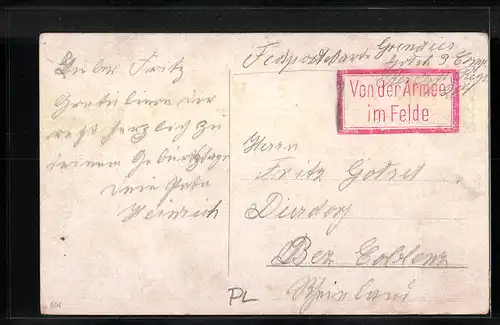 Lieber Fritz
Gratuliere dir
recht herzlich zu
deinem Geburtstage
Dein Pate
Heinrich
Feldpostkarte
Von der Armee
im Felde
Herrn
Fritz
Dierdorf
Bez Coblenz
Rheinland
PL
604